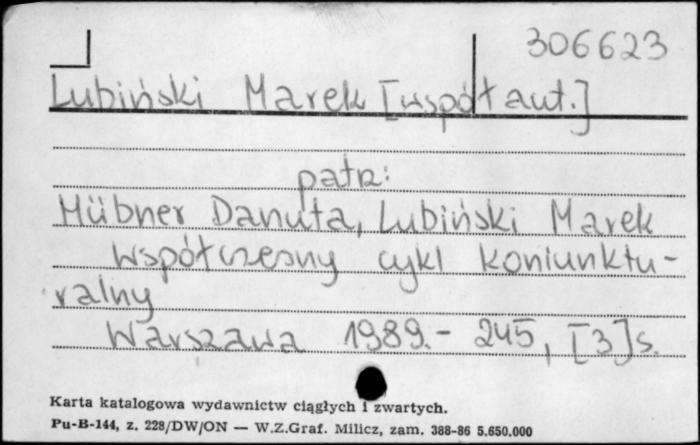 306623
Lubiński Marek [współaut.]
patrz:
Hübner Danuta, Lubiński Marek
Współczesny cykl koniunktu-
ralny
Warszawa 1989.- 245, [3]s.
Karta katalogowa wydawnictw ciągłych i zwartych.
Pu-B-144, z. 228/DW/ON — W.Z.Graf. Milicz, zam. 388-86 5.650.000